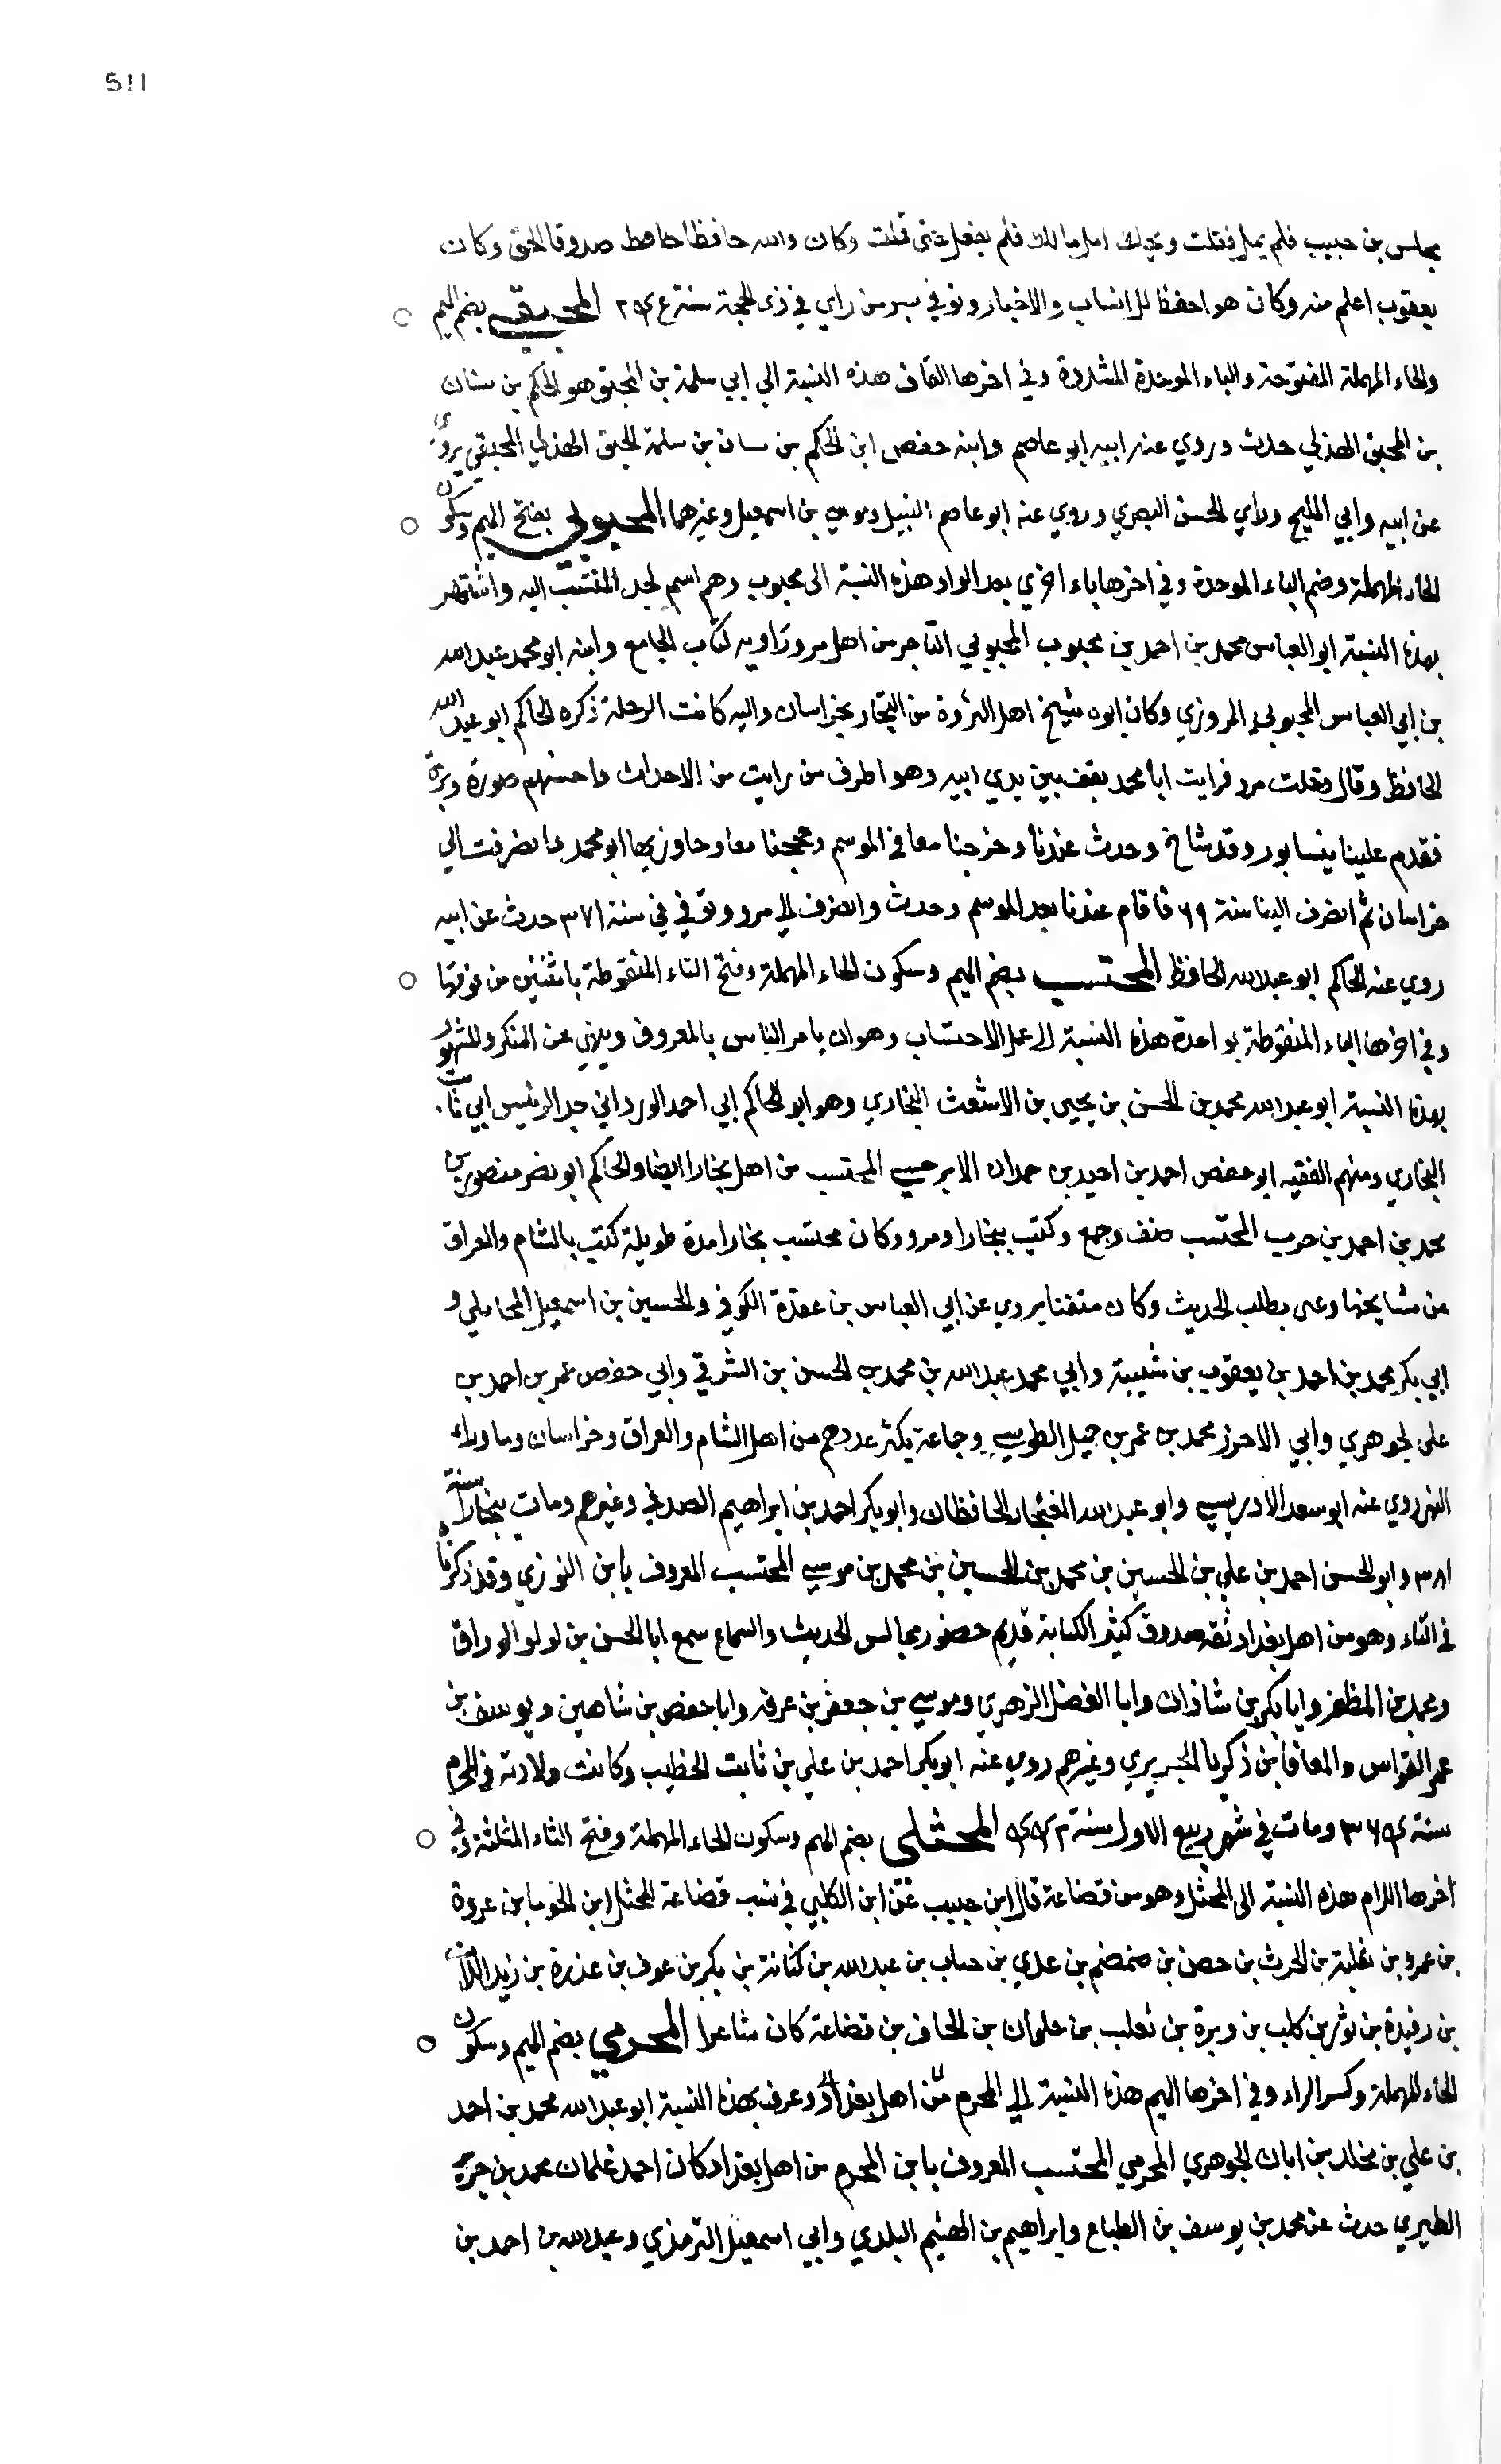 511
مجلس بن حبيب فلم يمل فقلت ويحك امل مالك فلم يفعل حتى قمت وكان والله حافظا حافظ صدوقا الحق وكان
يعقوب اعلم منه وكان هو احفظ للانساب والاخبار وتوفي بسر من راي في ذى الحجة سنة المحبقي بضم الميم
والحاء المهملة المفتوحة والباء الموحدة المشددة وفي اخرها القاف هذه النسبة الي ابي سلمة بن المحبق هو الحكم بن سنان
بن المحبق الهذلي حدث وروي عنه ابيه ابو عاصم وابنه حفص ابن الحكم بن سنان بن سلمة المحبق الهذلي المحبقي يروي
عن ابيه وابي المليح وراي الحسن البصري وروي عنه ابو عاصم النبيل وموسي بن اسمعيل وغيرهما المحبوبي بفتح الميم وسكون
الحاء المهملة وضم الباء الموحدة وفي اخرها باء اخري بعد الواو هذه النسبة الى محبوب وهم اسم لجد المنتسب اليه واشتهر
بهذه النسبة ابو العباس محمد بن احمد بن محبوب المحبوبي التاجر من اهل مرو راويه كتاب الجامع وابنه ابو محمد عبد الله
بن ابي العباس المحبوبي المروزي وكان ابوه شيخ اهل الثروة من التجار بخراسان واليه كانت الرحلة ذكره الحاكم ابو عبد الله
الحافظ وقال دخلت مرو فرايت ابا محمد يقف بين يدي ابيه وهو اظرف من رايت من الاحداث واحسنهم صورة وبزة
فقدم علينا نيسابور وقد شاخ وحدث عندنا وخرجنا معا في الموسم وحججنا معا وجاور بها ابو محمد وانصرفت الي
خراسان ثم انصرف الينا سنة ٦٩ فاقام عندنا بعد الموسم وحدث وانصرف الي مرو وتوفي في سنة ٣٧١ حدث عن ابيه
روي عنه الحاكم ابو عبد الله الحافظ المحتسب بضم الميم وسكون الحاء المهملة وفتح التاء المنقوطة باثنتين من فوقها
وفي اخرها الباء المنقوطة بواحدة هذه النسبة الى عمل الاحتساب وهو ان يامر الناس بالمعروف وينهي عن المنكر والمشهور
بهذه النسبة ابو عبد الله محمد بن الحسن بن يحيى بن الاشعث البخاري وهو ابو الحاكم ابي احمد الورداني جد الرئيس ابي ثابت
البخاري ومنهم الفقيه ابو حفص احمد بن احيد بن حمدان المحتسب من اهل بخارا ايضا والحاكم ابو نصر منصور بن
محمد بن احمد بن حرب المحتسب صنف وجمع وكتب ببخارا ومرو وكان محتسب بخارا مدة طويلة كتب بالشام والعراق
عن مشايخها وعني بطلب الحديث وكان متقنا يروي عن ابي العباس بن عقدة الكوفي والحسين بن اسمعيل المحاملي و
ابي بكر محمد بن احمد بن يعقوب بن شيبة وابي محمد عبد الله بن محمد بن الحسن بن الشرقي وابي حفص عمر بن احمد بن
علي الجوهري وابي الاحرز محمد بن عمر بن جميل الطوسي وجماعة يكثر عددهم من اهل الشام والعراق وخراسان وما وراء
النهر روي عنه ابو سعد الادريسي وابو عبد الله الغنجار الحافظان وابو بكر احمد بن ابراهيم الصدفي وغيرهم ومات ببخارا سنة
٣٨١ وابو الحسن احمد بن علي بن الحسين بن محمد بن الحسين بن محمد بن موسي المحتسب المعروف بابن التوزي وقد ذكرناه
في التاء وهو من اهل بغداد ثقه صدوق كثير الكتابة قديم حضور مجالس الحديث والسماع سمع ابا الحسن بن لولو الوراق
ومحمد بن المظفر وابا بكر بن شاذان وابا الفضل الزهري وموسي بن جعفر بن عرفه وابا حفص بن شاهين ويوسف بن
عمر القواس والمعافا بن زكريا الجريري وغيرهم روي عنه ابو بكر احمد بن علي بن ثابت الخطيب وكانت ولادته في المحرم
سنة ٣٦٤ ومات في شهر ربيع الاول سنة ٤٤٢ المحثلي بضم الميم وسكون الحاء المهملة وفتح الثاء المثلثة وفي
اخرها اللام هذه النسبة الى المحثل وهو من قضاعة قال ابن حبيب عن ابن الكلبي في نسب قضاعة المحثل ابن الحوما بن عروة
بن عمرو بن ثعلبة بن الحرث بن حصن بن ضمضم بن عدي بن جناب بن عبد الله بن كنانة بن بكر بن عوف بن عذرة بن زيد اللات
بن رفيدة بن ثور بن كلب بن وبرة بن تغلب بن حلوان بن الحاف بن قضاعة كان شاعرا المحرمي بضم الميم وسكون
الحاء المهملة وكسر الراء وفي اخرها الميم هذه النسبة الي المحرم من اهل بغداد وعرف بهذه النسبة ابو عبد الله محمد بن احمد
بن علي بن مخلد بن ابان الجوهري المحرمي المحتسب المعروف بابن المحرم من اهل بغداد كان احمد غلمان محمد بن جرير
الطبري حدث عن محمد بن يوسف بن الطباع وابراهيم بن الهيثم البلدي وابي اسمعيل الترمذي وعبد الله بن احمد بن